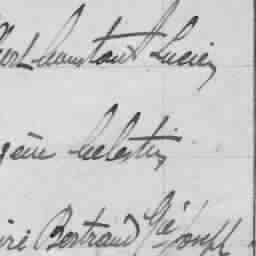 Constant Lucien
gène Célestin
Bertrand Joseph